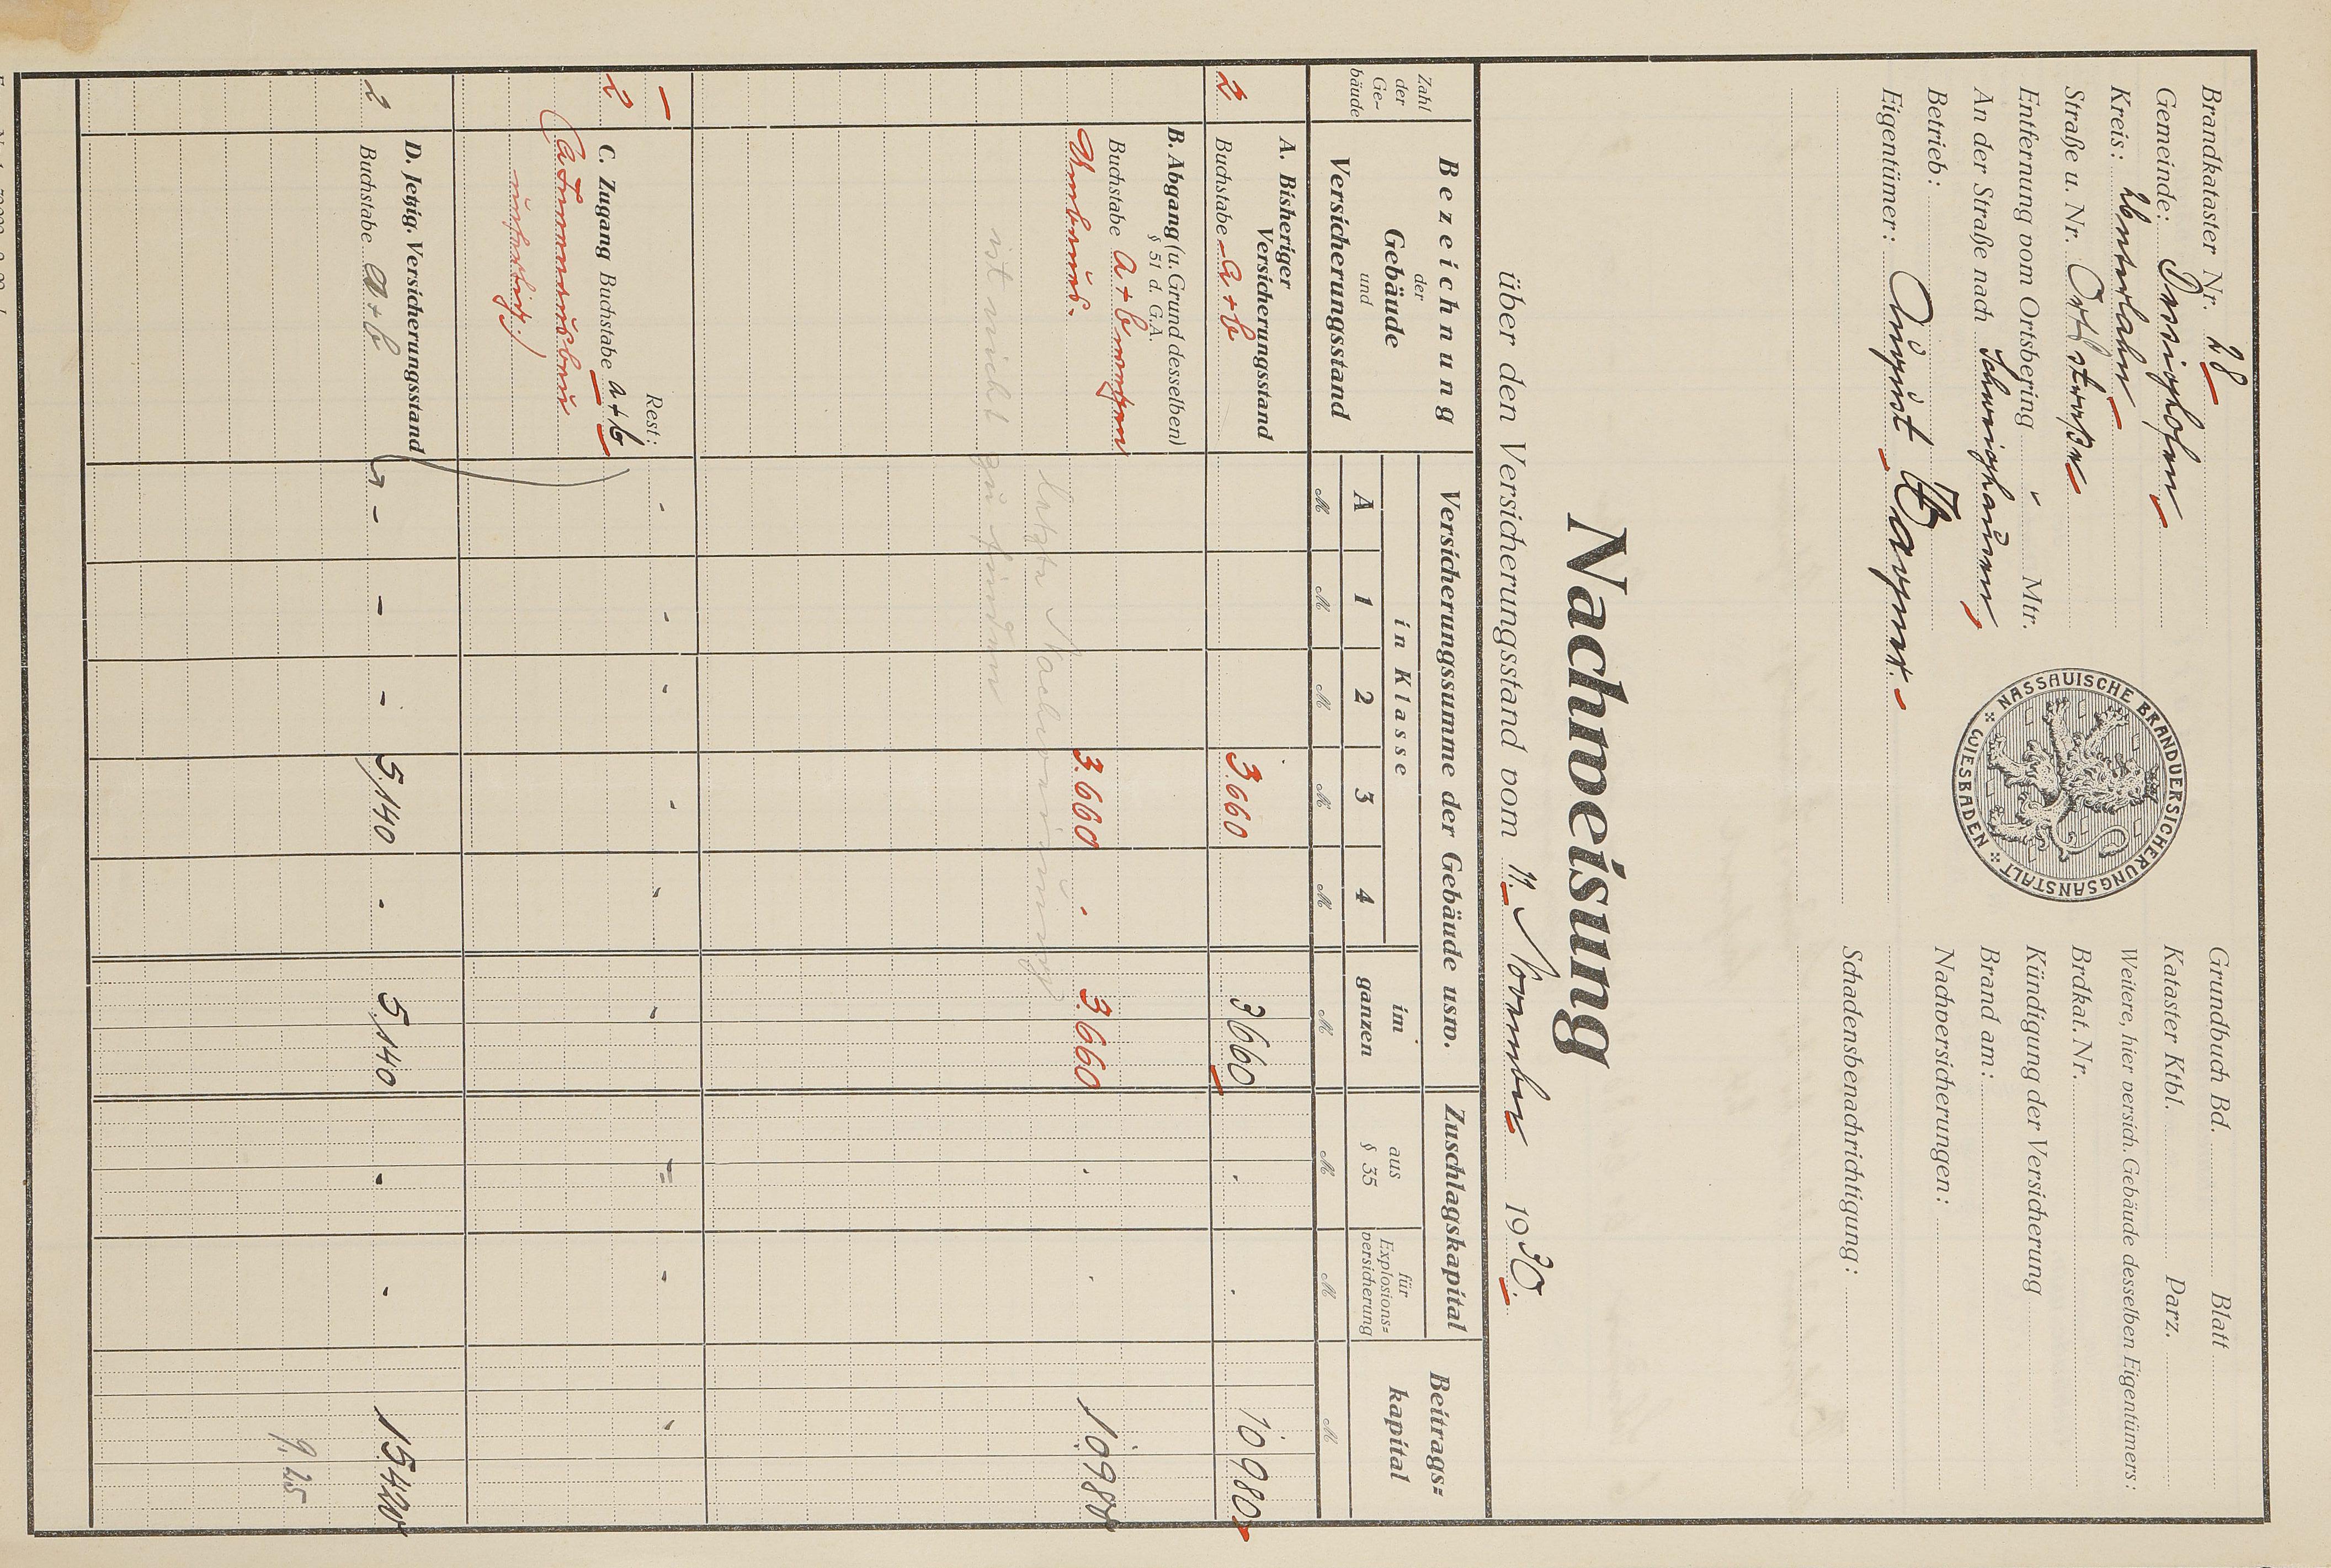 Brandkataster Nr. 28
Gemeinde: Dessighofen
Kreis: Unterlahn
Straße u. Nr. Ortstraße
Entfernung vom Ortsbering Mtr.
An der Straße nach Schweighausen
Betrieb:
Eigentümer: August Wagner.
NASSAUISCHE BRANDVERSICHERUNGSANSTALT WIESBADEN
Grundbuch Bd. Blatt
Kataster Ktbl. Parz.
Weitere, hier versich. Gebäude desselben Eigentümers:
Brdkat. Nr.
Kündigung der Versicherung
Brand am:
Nachversicherungen:
Schadensbenachrichtigung:
Nachweisung
über den Versicherungsstand vom 11. November 1930.
Zahl der Ge-bäude
Bezeichnung der Gebäude und Versicherungsstand
Versicherungssumme der Gebäude usw.
in Klasse
A 1 2 3 4
im ganzen
Zuschlagskapital
aus § 35
für Explosions-versicherung
Beitrags-kapital
M M M M M M M M M
A. Bisheriger Versicherungsstand
2 Buchstabe a + b 3.660 3660 10980
B. Abgang (u. Grund desselben)
§ 51 d. G.A.
Buchstabe a + b wegen
Umbaus. 3.660 - 3.660 10980
letzte Nachweisung
ist nicht zu finden
Rest: - - - - - - - -
2 C. Zugang Buchstabe a + b
(a Innenausbau
unfertig.)
D. Jetzig. Versicherungsstand
2 Buchstabe a + b - - - 5,140 - 5,140 - - 15420
9,25